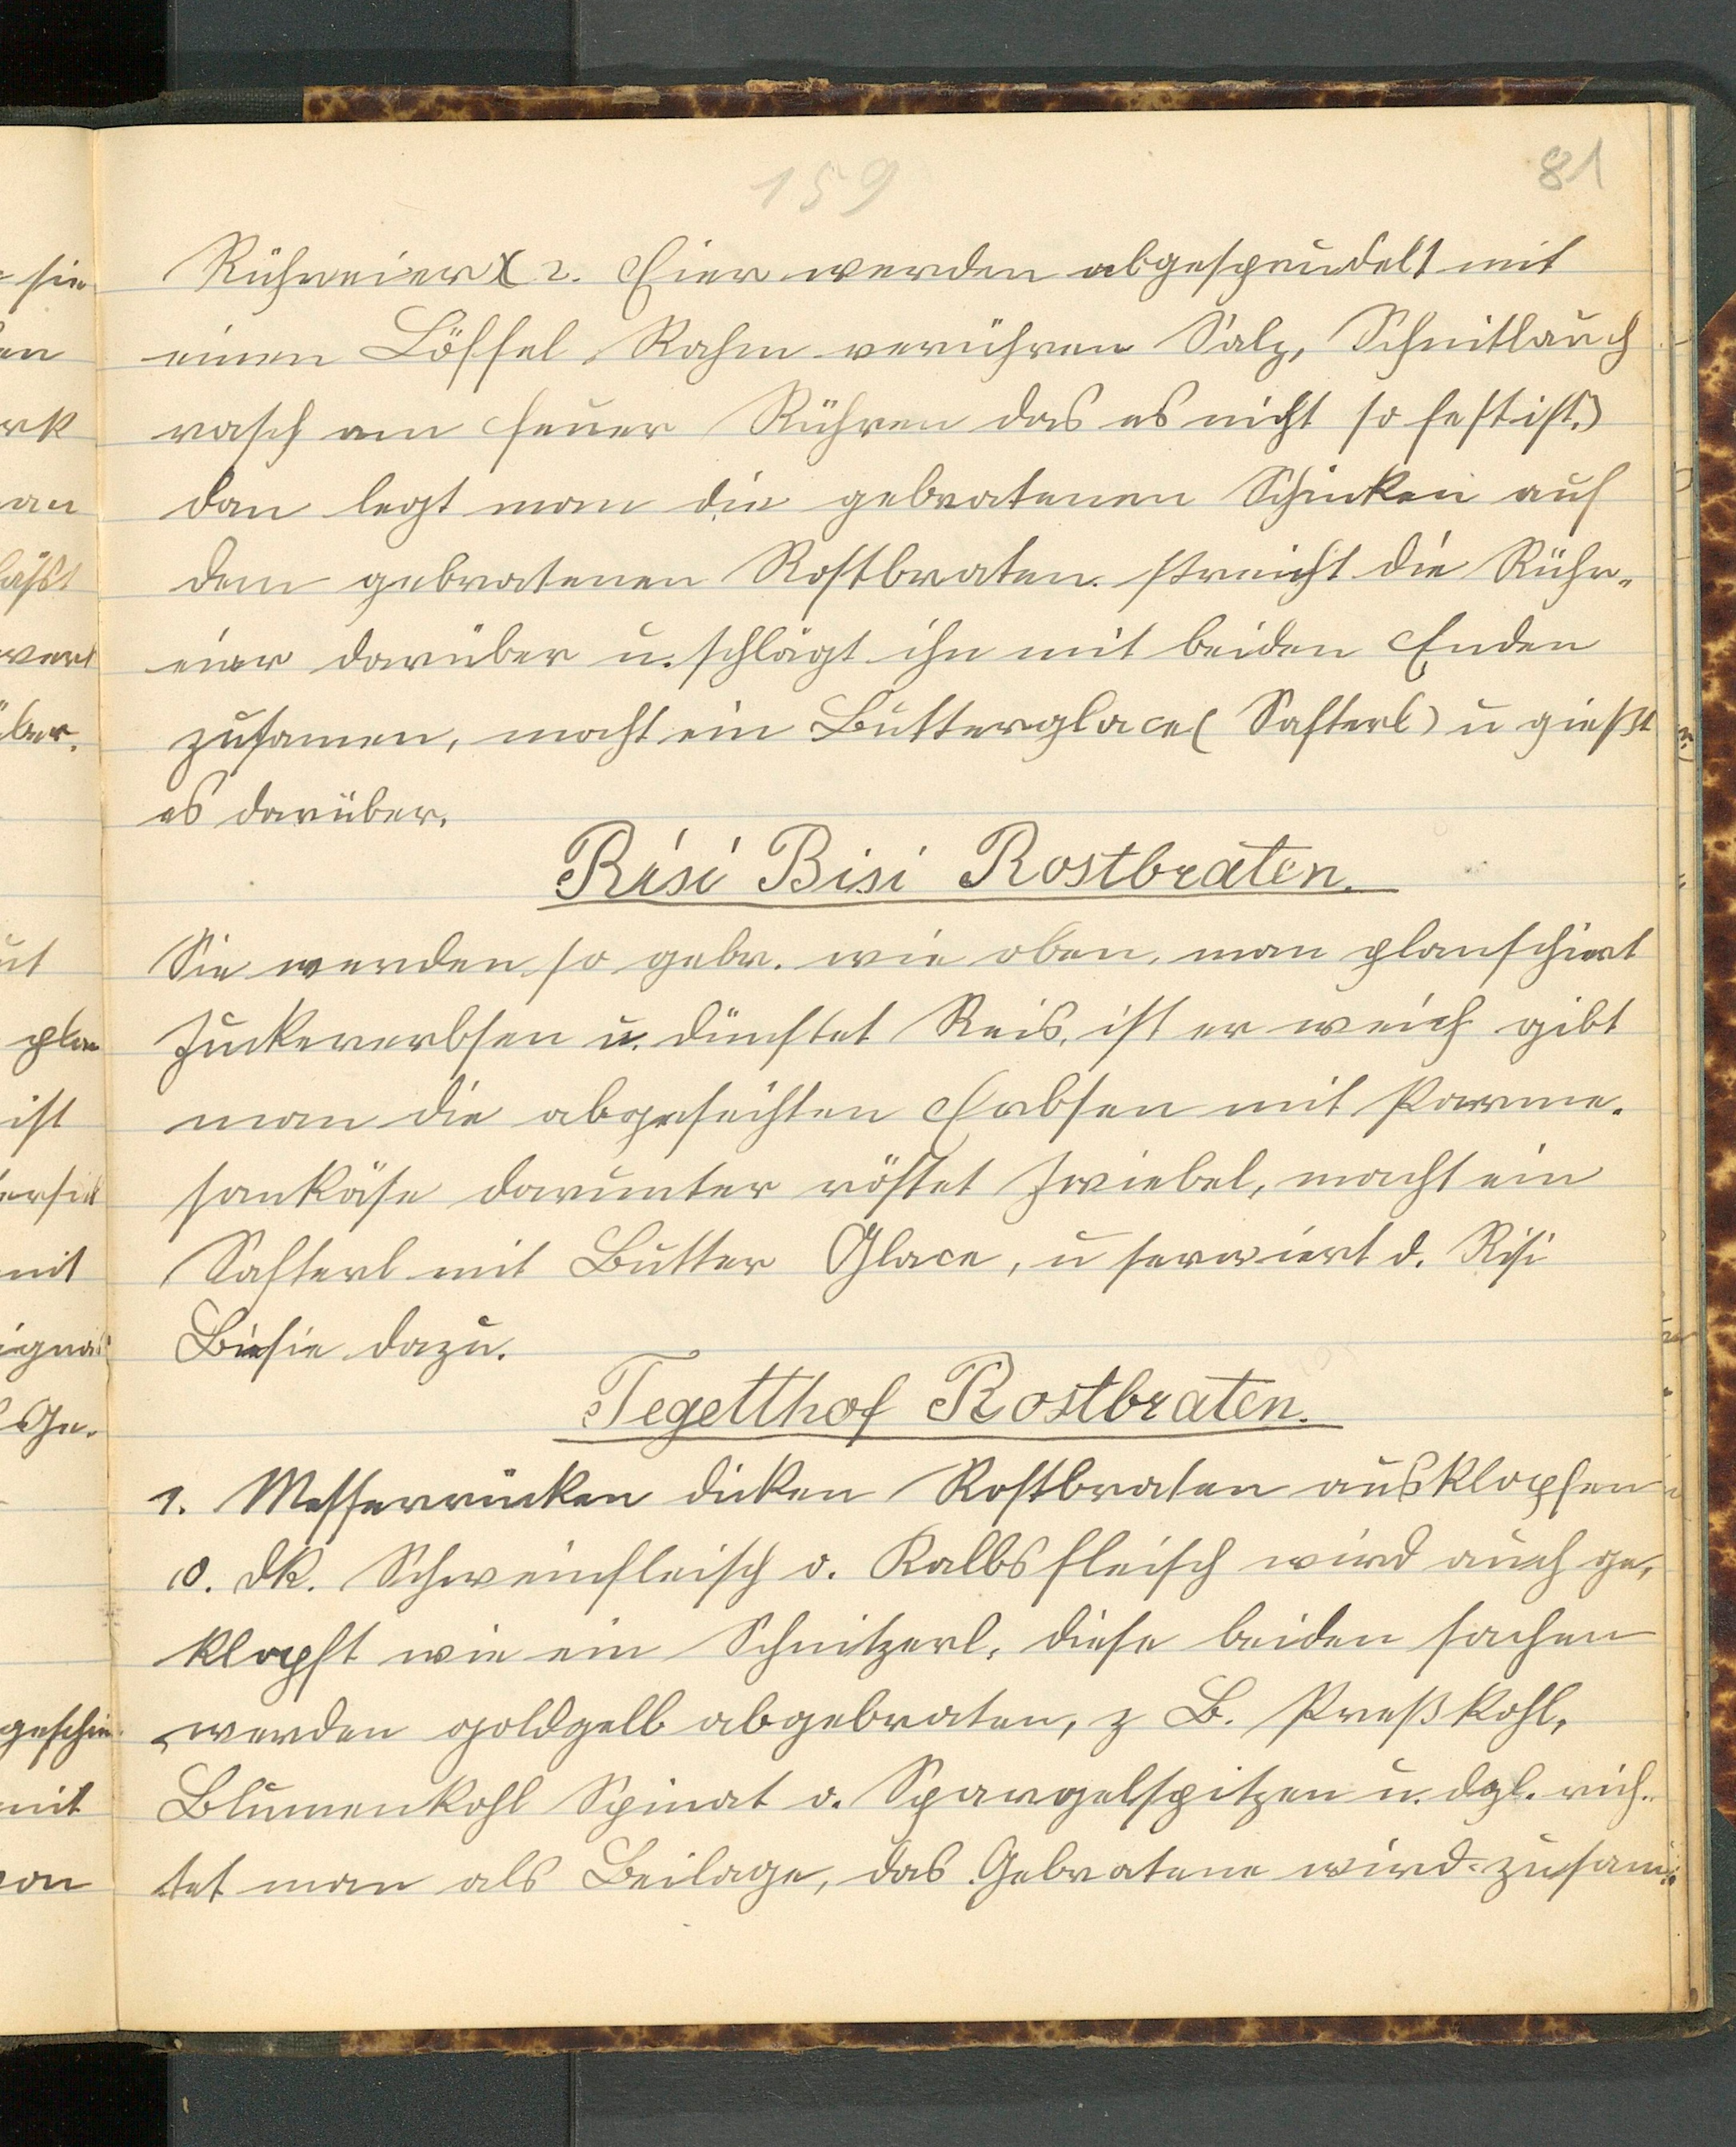 159
81
Rühreier (2. Eier werden abgesprudelt mit
einen Löffel Rahm verrühren Salz, Schnitlauch
rasch am feuer Rühren das es nicht so fest ist.)
dan legt man die gebratenen Schinken auf
dem gebratenen Rostbraten. streicht die Rühr-
eier darüber u. schlägt ihn mit beiden Enden
zusamen, macht ein Butterglace (Safterl) u gießt
es darüber.
Risi Bisi Rostbraten.
Sie werden so gebr. wie oben, man planschiert
Zuckererbsen u. dünstet Reis, ist er weich gibt
man die abgeseihten Erbsen mit Parme-
sankäse darunter röstet Zwiebel, macht ein
Safterl mit Butter Glace, u serviert d. Risi
Bisie dazu.
Tegetthof Rostbraten.
1. Messerrücken dicken Rostbraten ausklopfen
10. dk. Schweinfleisch o. Kalbsfleisch wird auch ge-
klopft wie ein Schnitzerl, diese beiden sachen
werden goldgelb abgebraten, z B. Preßkohl,
Blumenkohl Spinat o. Spargelspitzen u. dgl. rich-
tet man als Beilage, das Gebratene wird zusam-